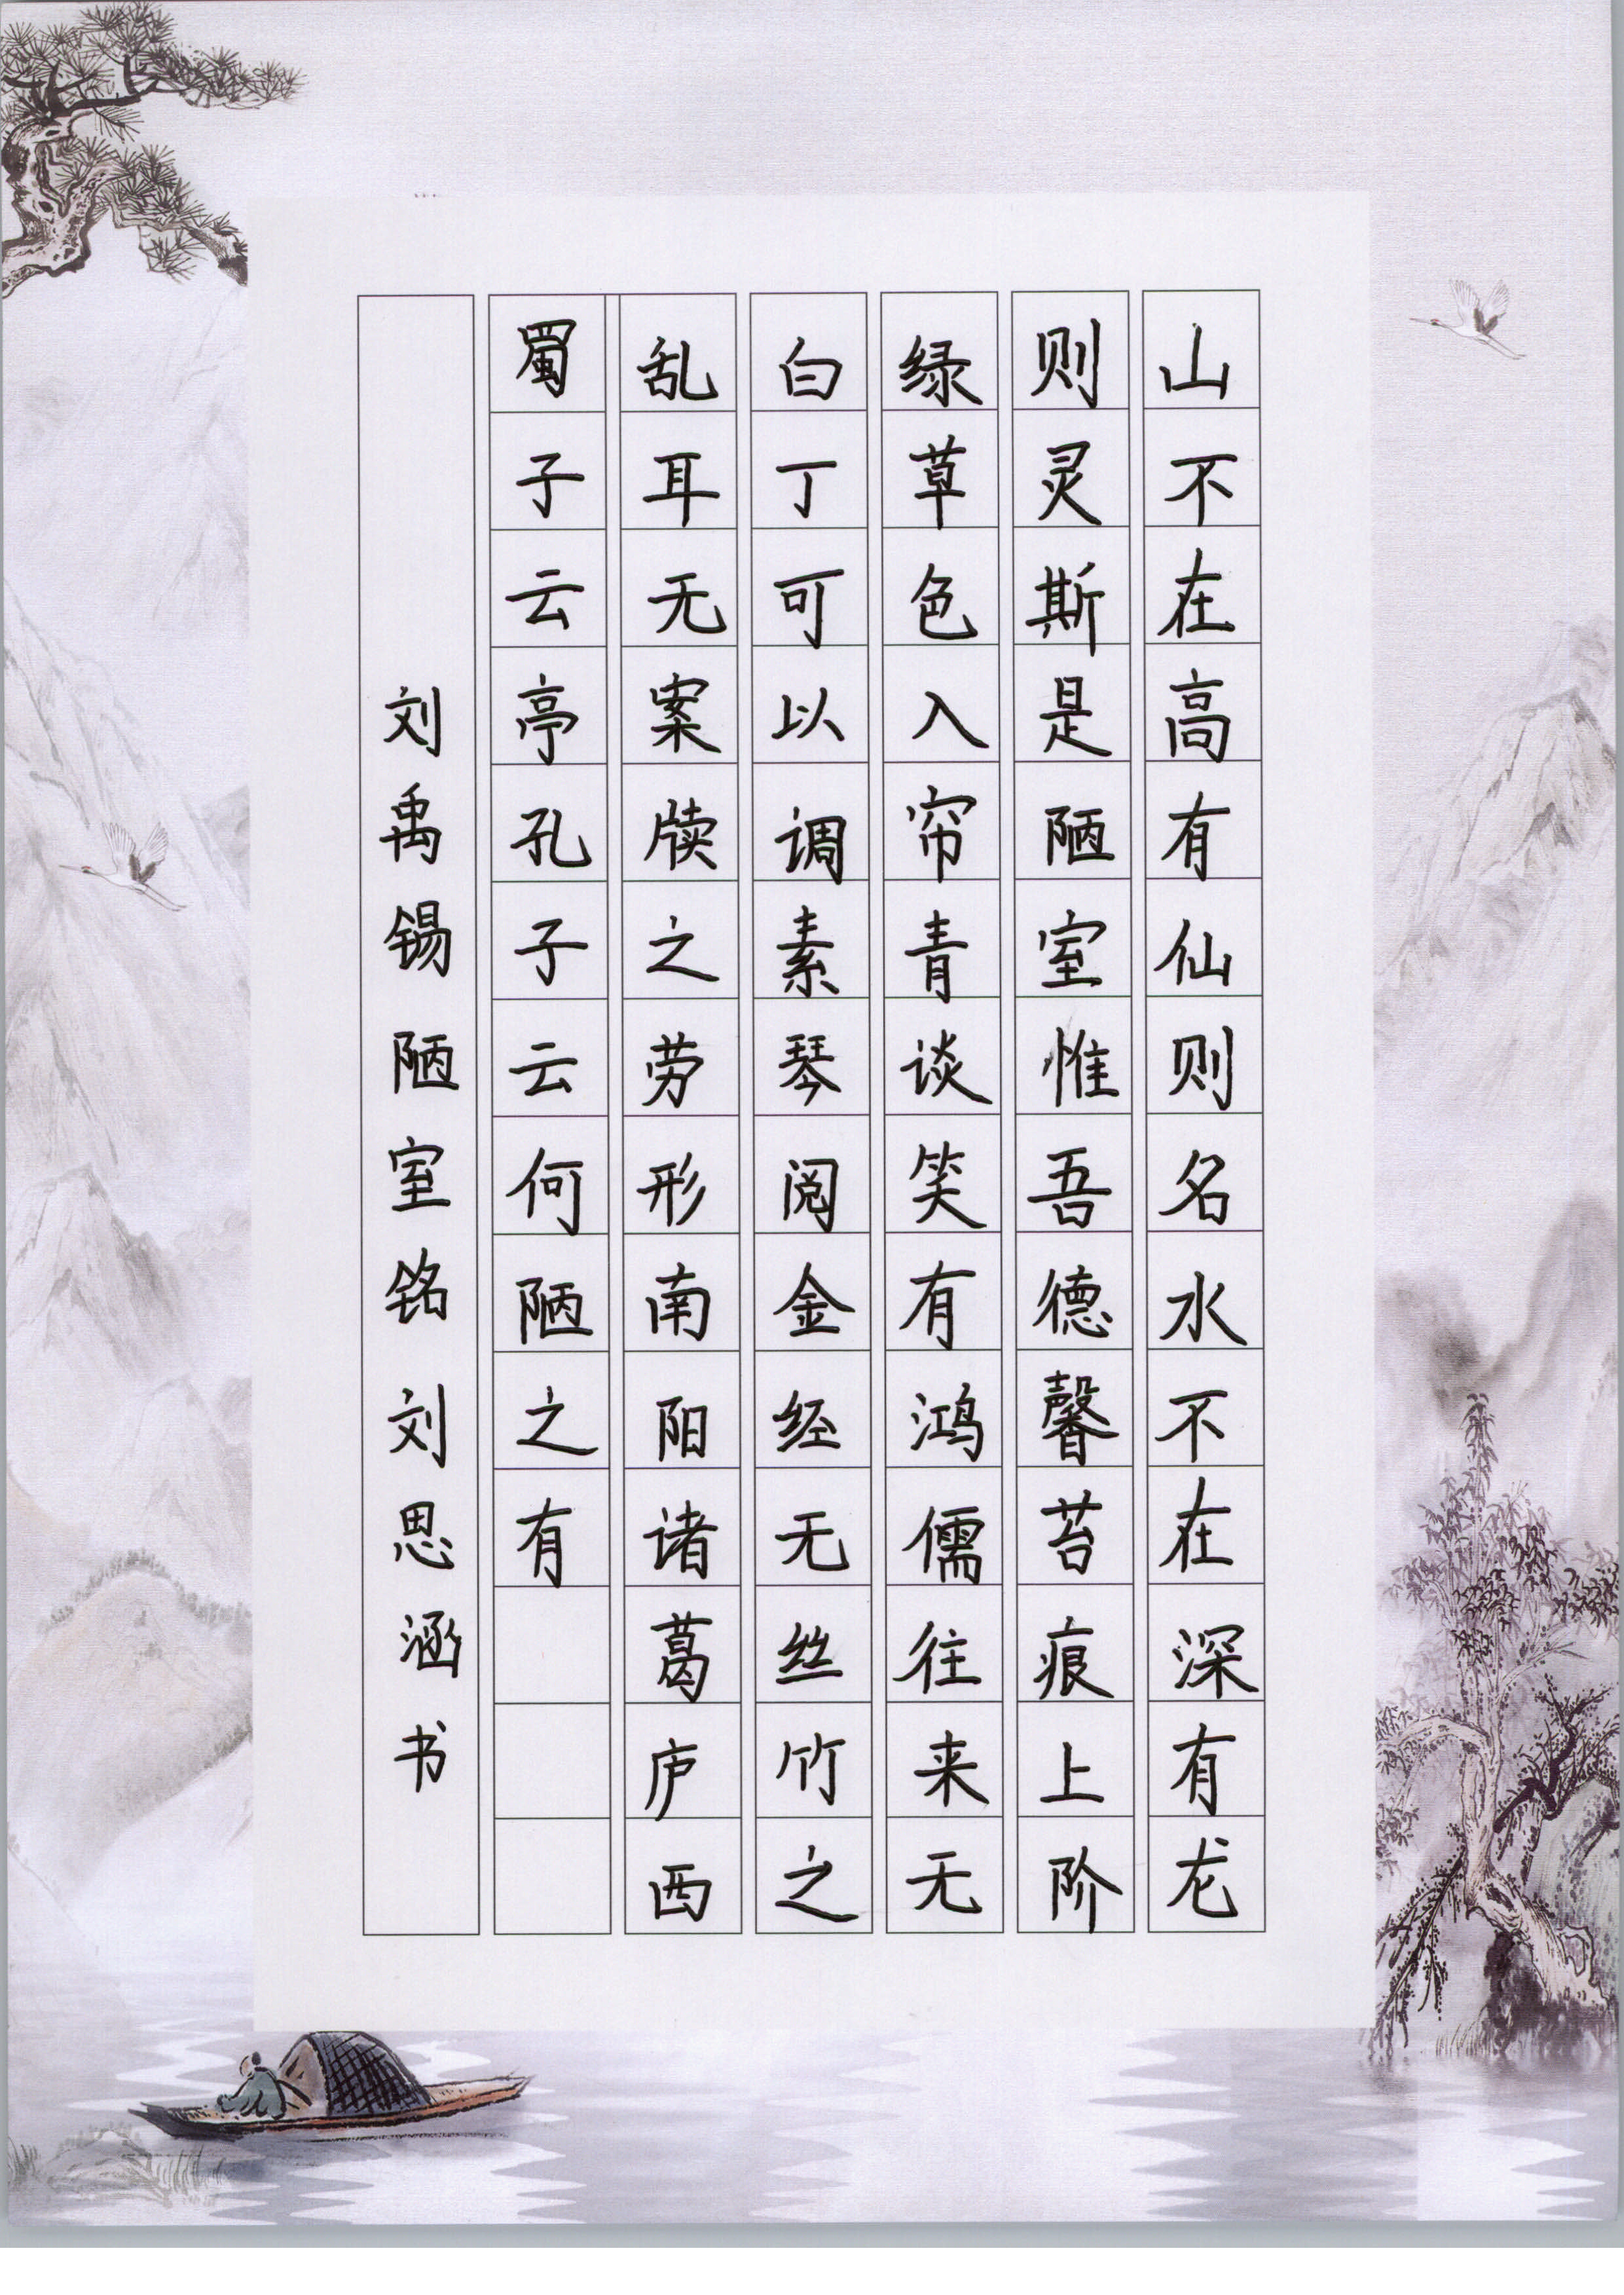 山不在高有仙则名水不在深有龙
则灵斯是陋室惟吾德馨苔痕上阶
绿草色入帘青谈笑有鸿儒往来无
白丁可以调素琴阅金经无丝竹之
乱耳无案牍之劳形南阳诸葛庐西
蜀子云亭孔子云何陋之有
刘禹锡陋室铭刘思涵书